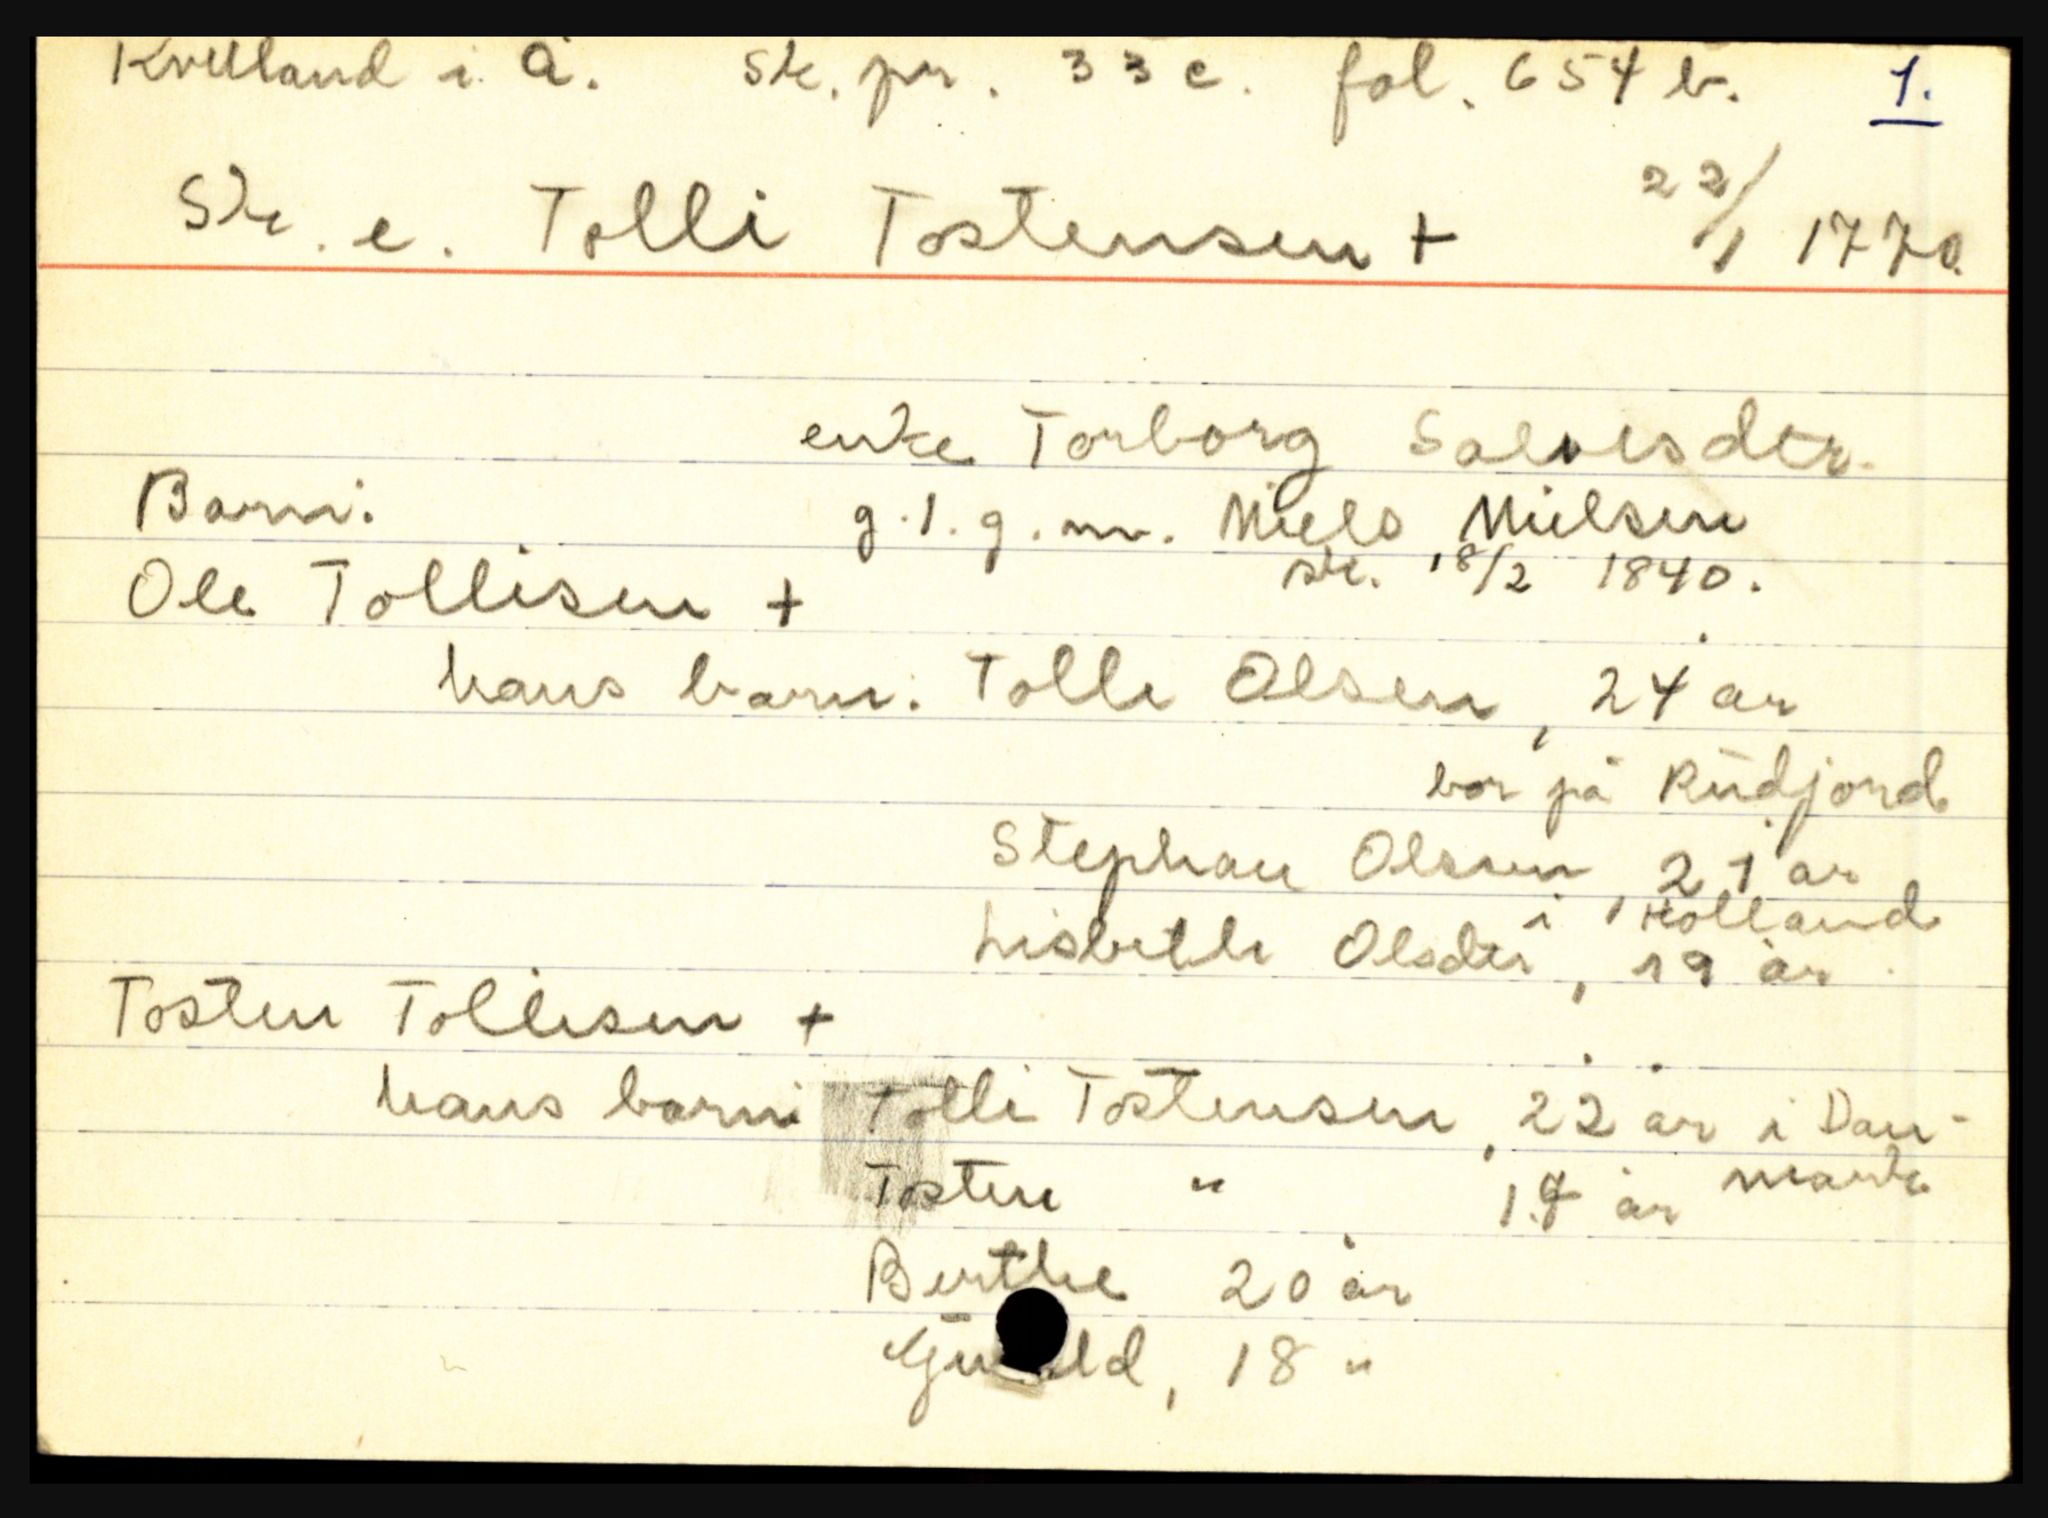 Kvelland i Å. Sk. pr. 33 c. fol. 654 b. 1.
Sk. e. Tolli Tostensen + 22/1 1770.
enke Torborg Salvesdtr.
Barn: g. 1. g. m. Niels Nielsen
sk. 18/2 1840.
Ole Tollisen +
hans barn: Tolle Olsen, 24 år
bor på Rudjord
Stephan Olsen, 21 år
i Holland
Lisbethe Olsdtr, 19 år
Tosten Tollisen +
hans barn: Tolli Tostensen, 22 år i Dan-
Tosten " 17 år mark
Berthe 20 år
18 "